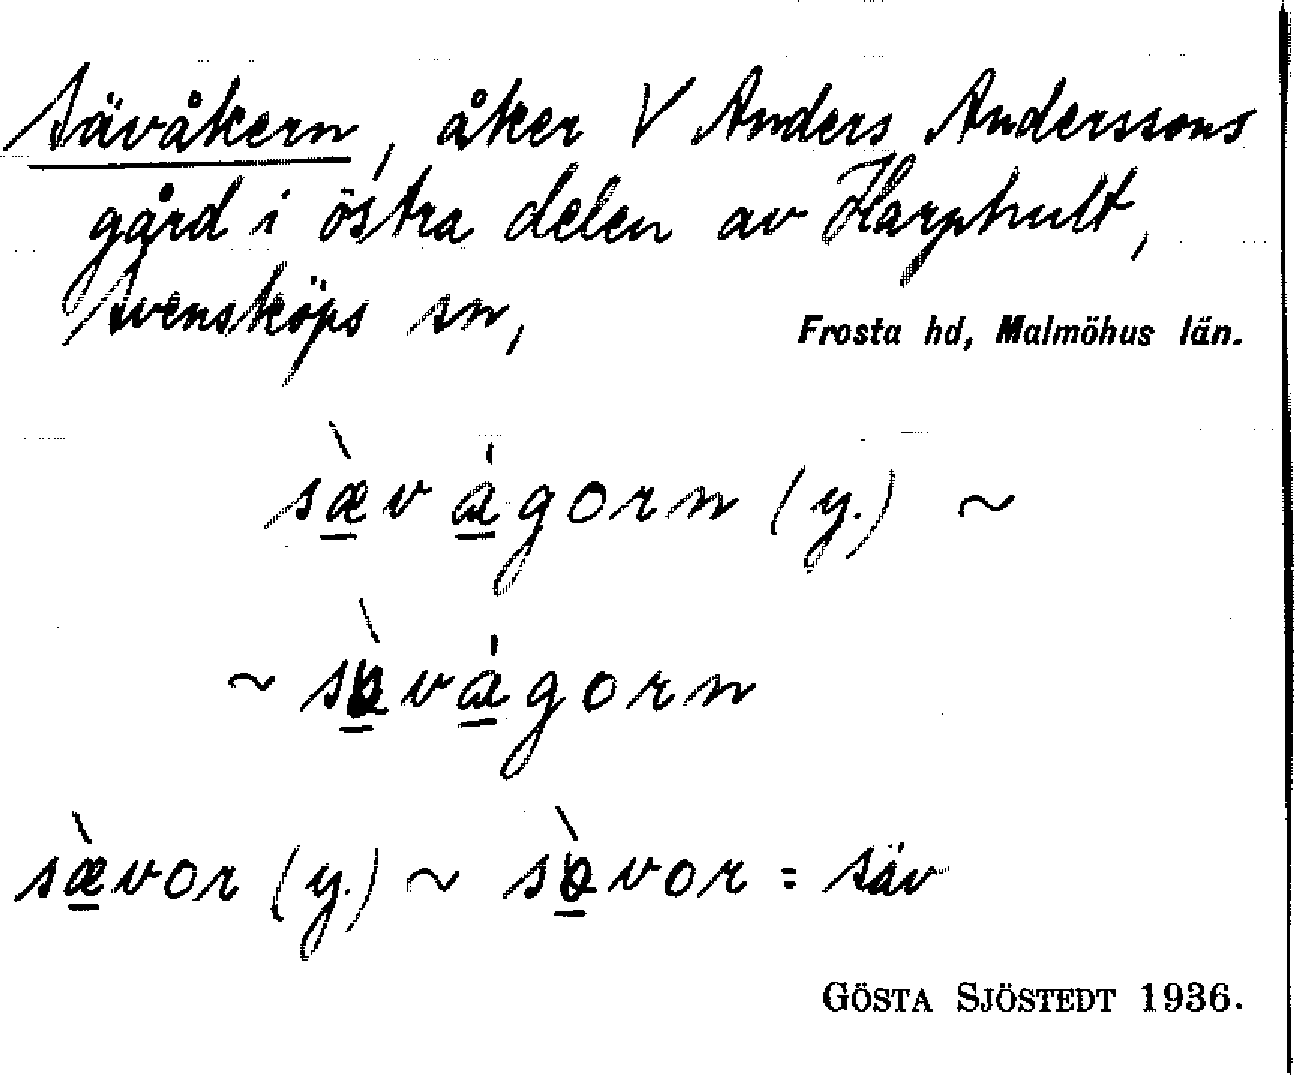 Sävåkern, åker V Anders Anderssons
gård i östra delen av Harphult,
Svensköps sn,
Frosta hd, Malmöhus län.
sæ̀vágorn (y.) ~
~ sò̱vágorn
sæ̀vor (y.) ~ sò̱vor = säv
GÖSTA SJÖSTEDT 1936.